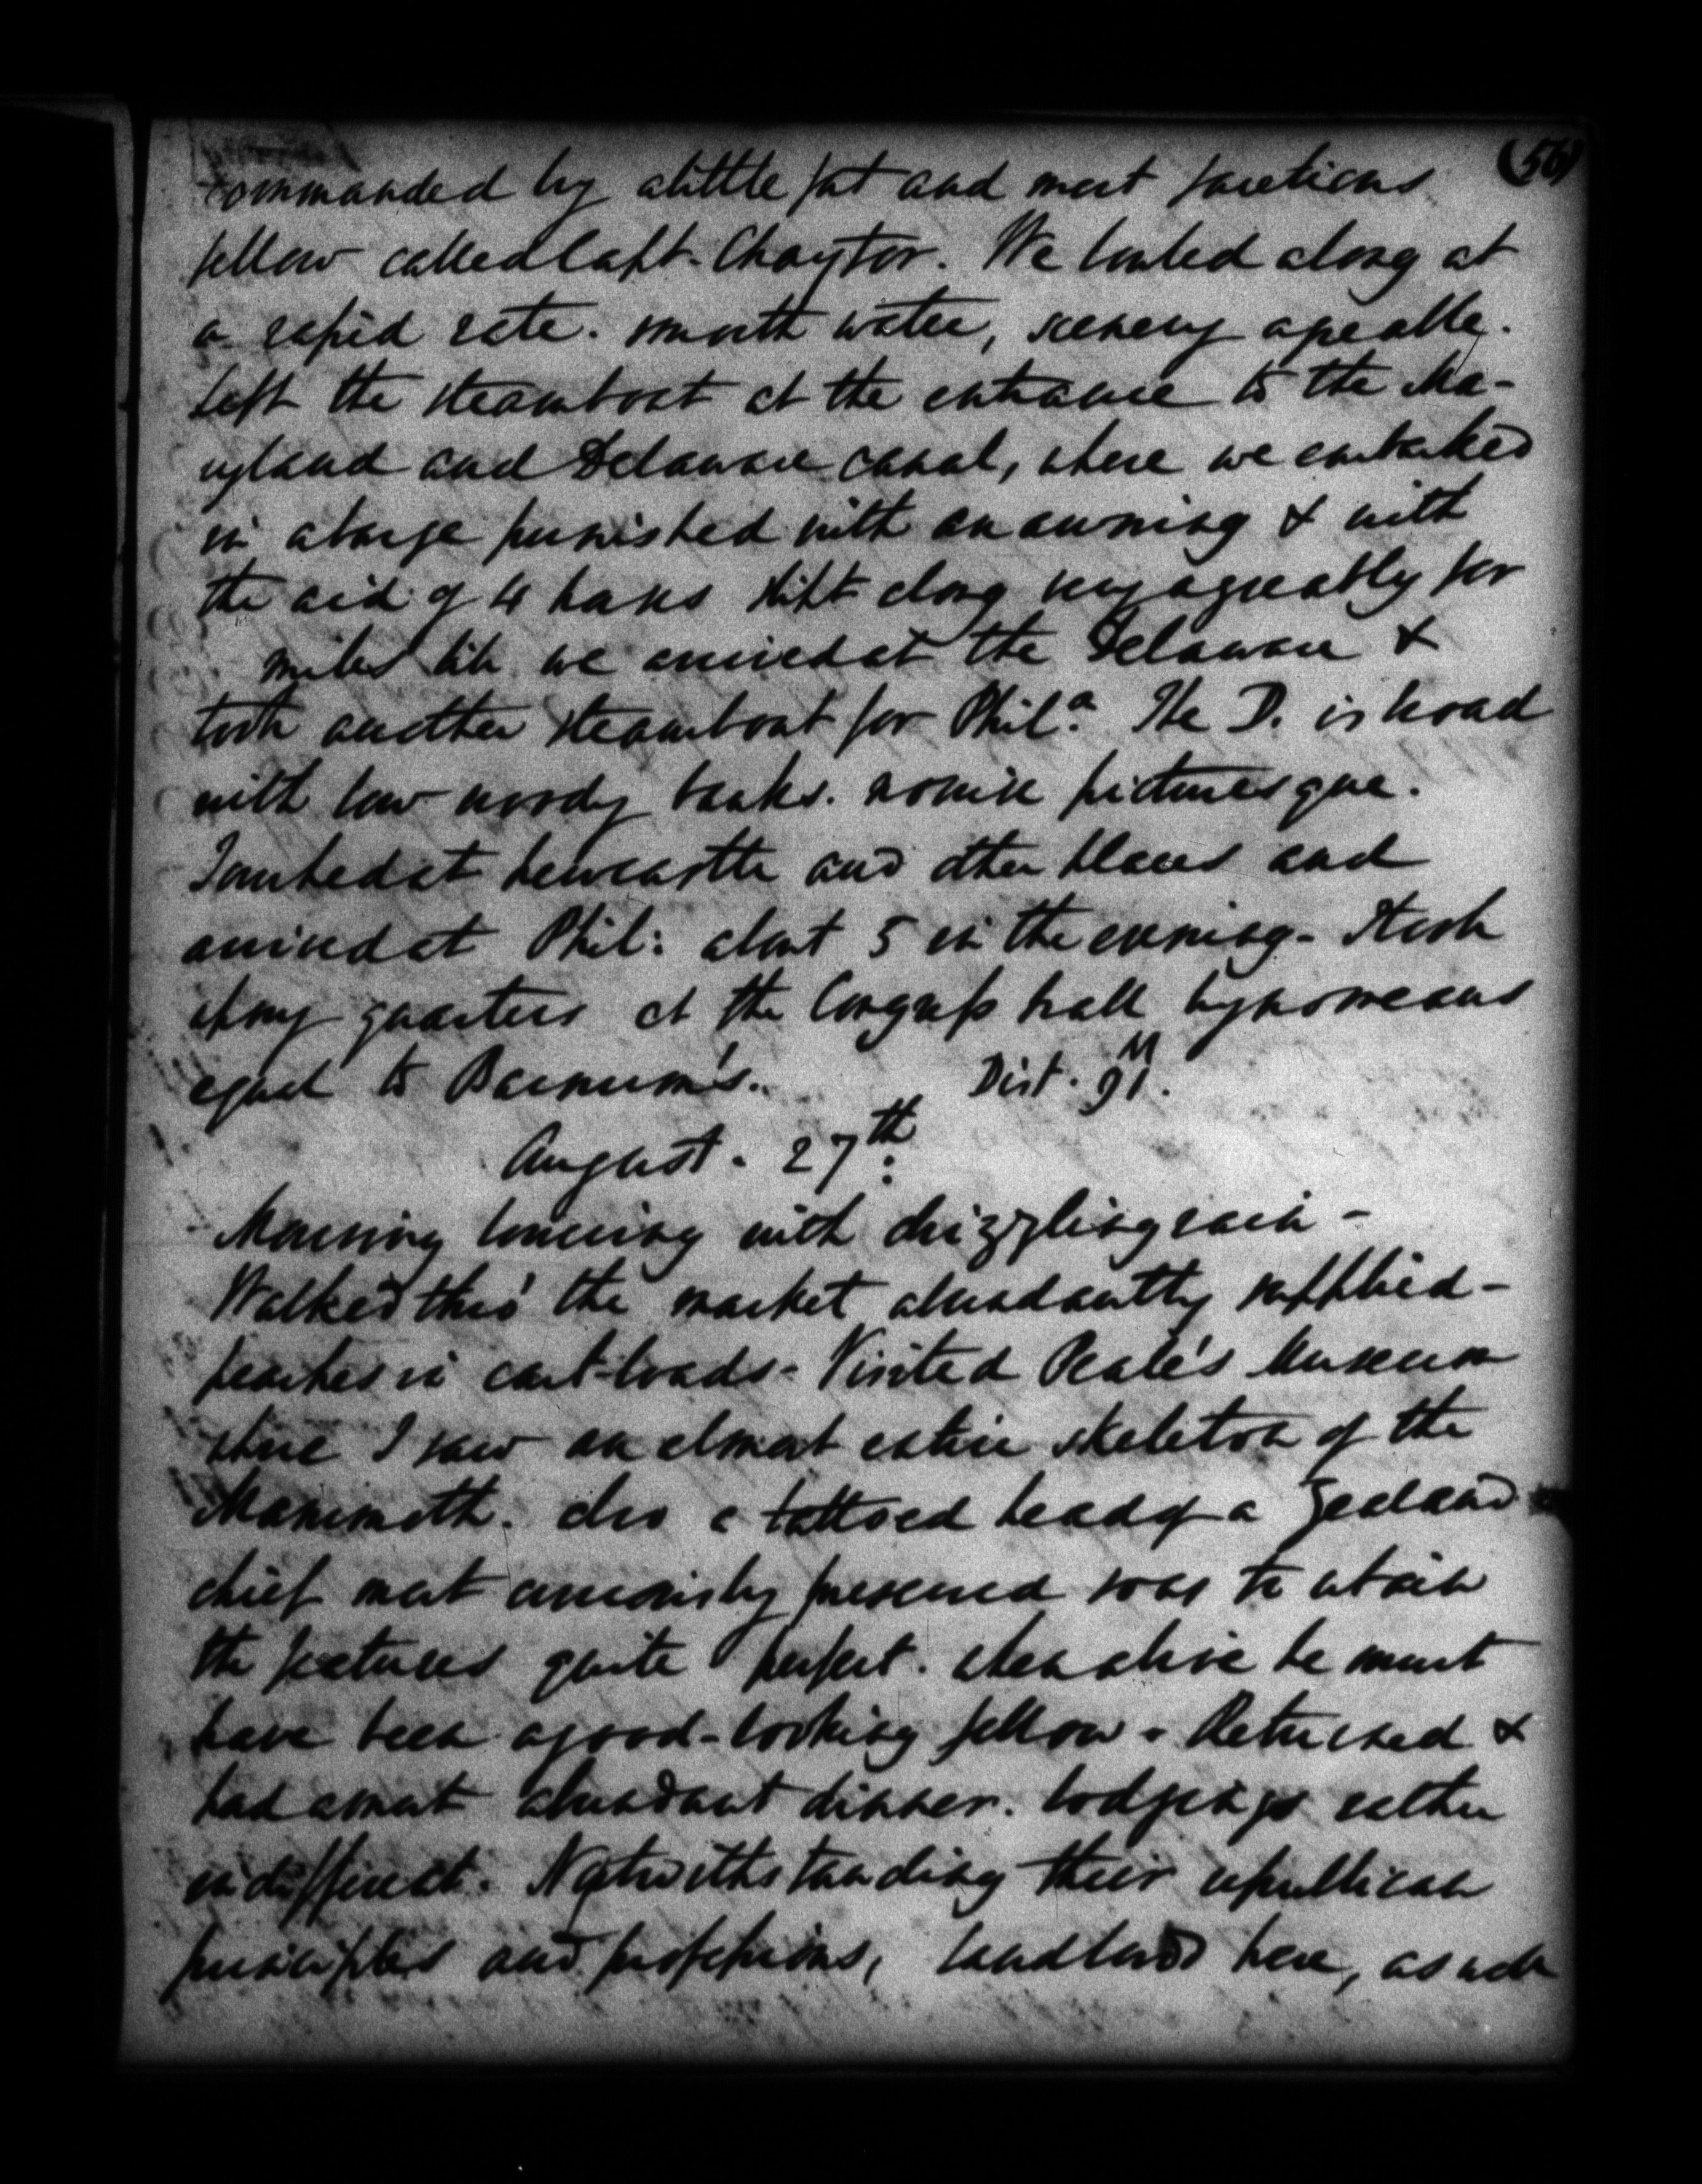 (56)
commanded by a little fat and most facetious
fellow called Capt. Chaytor. We bowled along at
a rapid rate. smooth water, scenery agreable.
Left the steamboat at the entrance to the Ma-
ryland and Delaware canal, where we embarked
in a barge furnished with an awning & with
the aid of 4 horses slipt along very agreeably for
miles till we arrived at the Delaware &
took another steamboat for Phila. The D. is broad
with low woody banks. nowise picturesque.
Touched at Newcastle and other places and
arrived at Phil: about 5 in the evening - I took
up my quarters at the Congress hall by no means
equal to Barnum's. Dist. 91 M.
August. 27th
Morning lowering with drizzling rain -
Walked thro' the market abundantly supplied -
peaches in cart-loads - Visited Peale's Museum
where I saw an almost entire skeleton of the
Mammoth. also a tattoed head of a Zealand
chief most curiously preserved so as to retain
the features quite perfect. when alive he must
have been a good-looking fellow. Returned &
had a most abundant dinner. lodgings rather
indifferent. Notwithstanding their republican
principles and professions, landlords here, as well